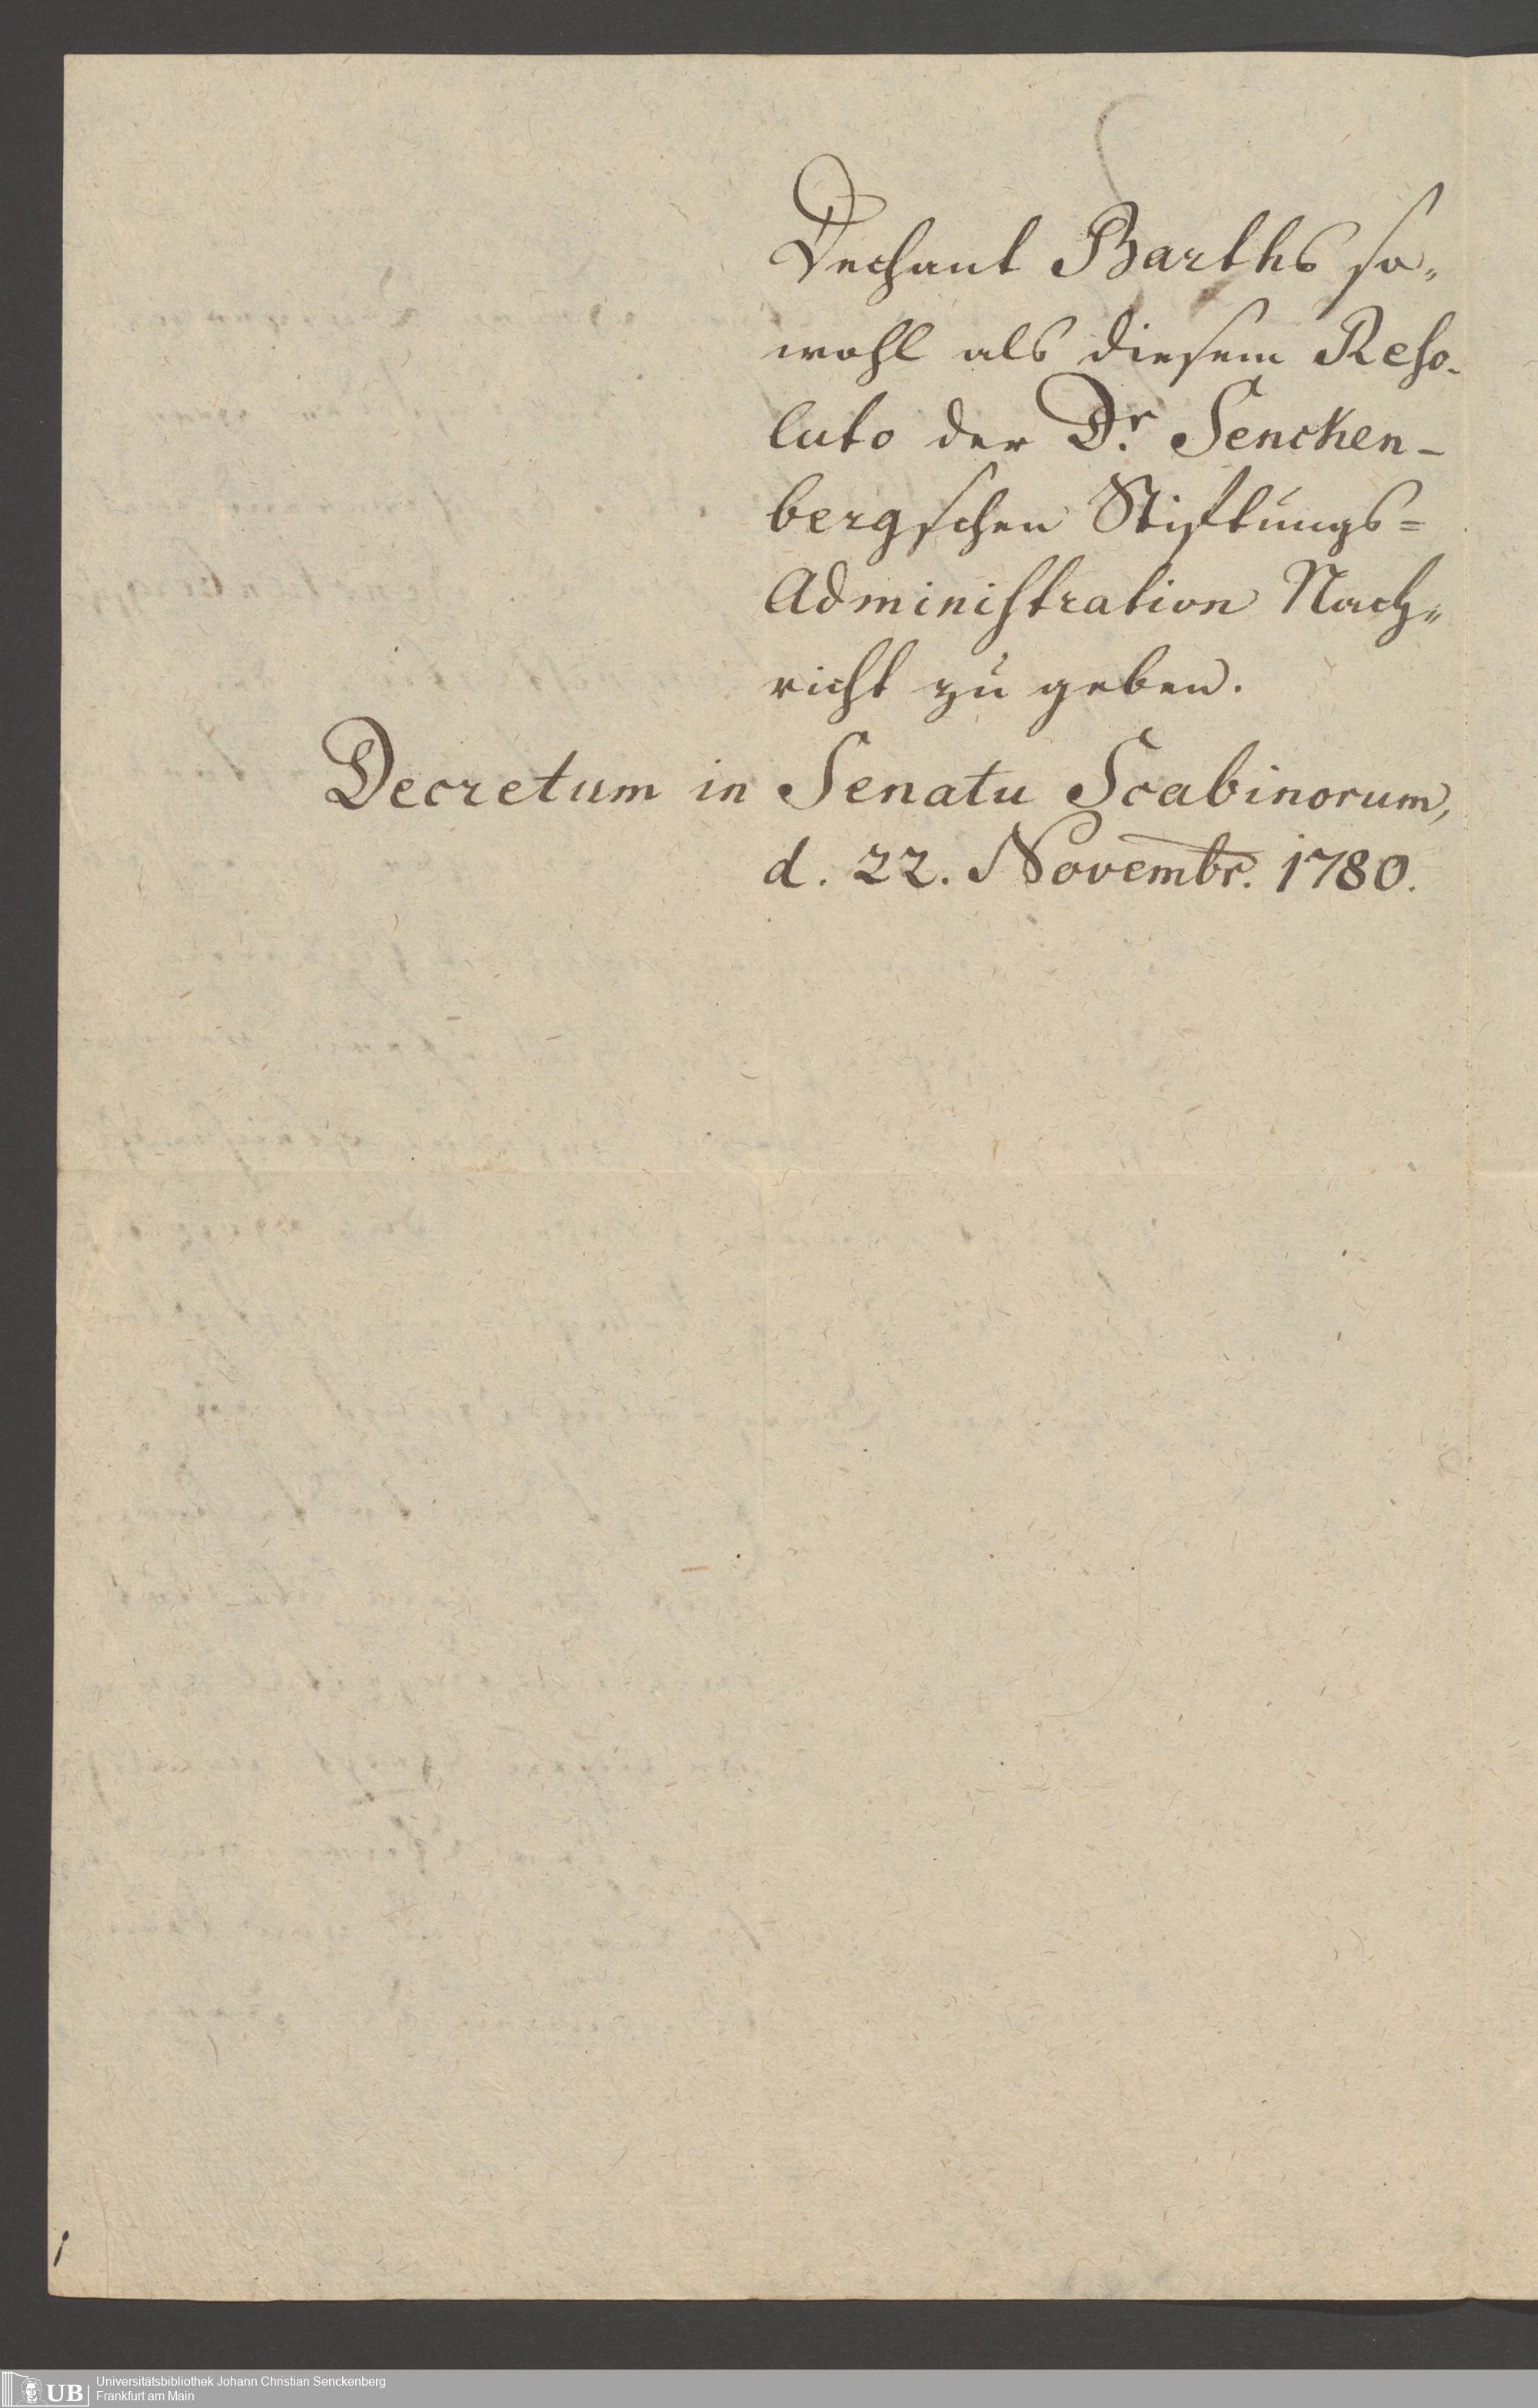 Dechant Barths so„
wohl als diesem Reso-
luto der Dr. Sencken-
bergschen Stiftungs=
Administration Nach„
richt zu geben.
Decretum in Senatu Scabinorum,
d. 22. Novembr. 1780.
UB Universitätsbibliothek Johann Christian Senckenberg
Frankfurt am Main